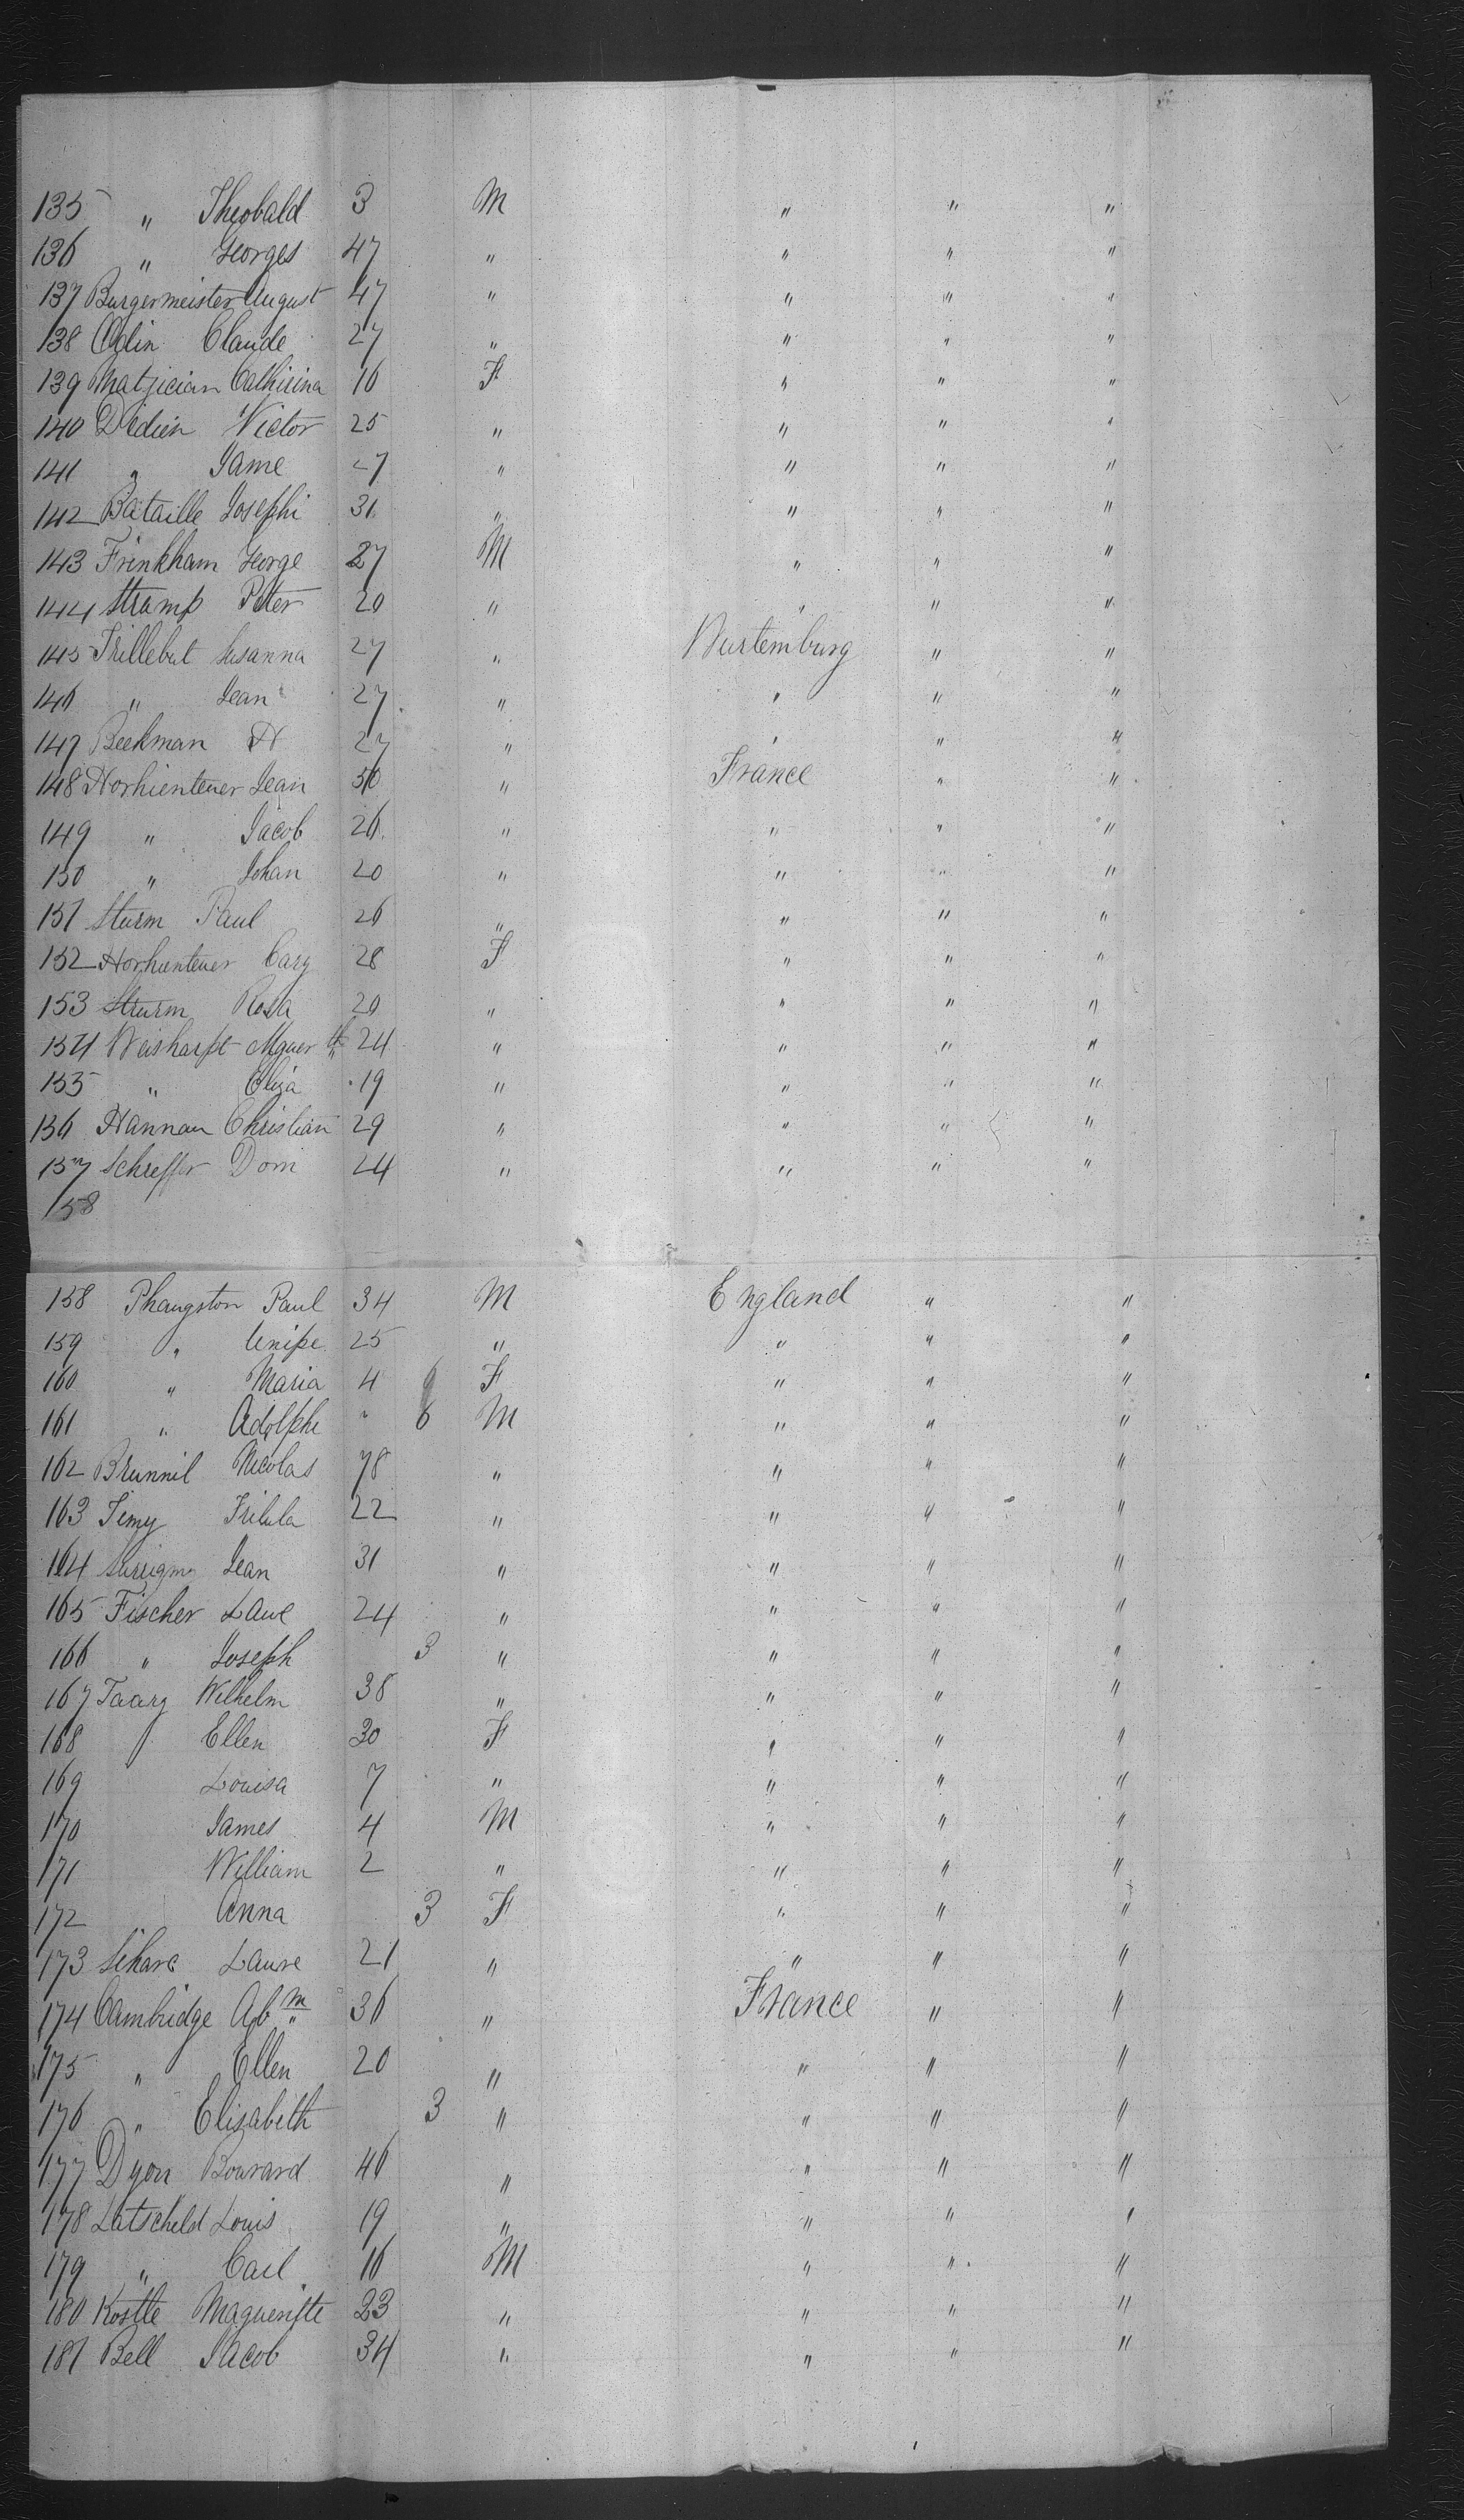 135 " Theobald 3 M " " "
136 " Georges 47 " " " "
137 Burgermeister August 47 " " " "
138 Odin Claude 27 " " " "
139 Matjician Cathirina 16 F " " "
140 Didien Victor 25 " " " "
141 " Jame 27 " " " "
142 Bataille Josephi 31 " " " "
143 Frinkham George 27 M " " "
144 Stramp Peter 20 " " " "
145 Trillebut Susanna 27 " Wurtemburg " "
146 " Jean 27 " " " "
147 Beekman H 27 " " " "
148 Horhientener Jean 50 " France " "
149 " Jacob 26 " " " "
150 " Johan 20 " " " "
151 Sturm Paul 26 " " " "
152 Horhientener Carg 28 F " " "
153 Sturm Rosa 20 " " " "
154 Weisharpt Mguer th 24 " " " "
155 " Eliza 19 " " " "
156 Hannau Christian 29 " " " "
157 Schreffer Dom 24 " " " "
158
158 Phangston Paul 34 M England " "
159 " Unipe 25 " " " "
160 " Maria 4 9 F " " "
161 " Adolphe " 6 M " " "
162 Brunnil Nicolas 78 " " " "
163 Jemy Frilula 22 " " " "
164 Jean 31 " " " "
165 Fischer Laue 24 " " " "
166 " Joseph 3 " " " "
167 Taarg Wilhelm 38 " " " "
168 Ellen 30 F " " "
169 Louisa 7 " " " "
170 James 4 M " " "
171 William 2 " " " "
172 Anna 3 F " " "
173 Sihare Laure 21 " " " "
174 Cambridge Abm 36 " France " "
175 " Ellen 20 " " " "
176 " Elisabeth 3 " " " "
177 Dyon Bourard 46 " " " "
178 Latscheld Louis 19 " " " "
179 " Carl 16 M " " "
180 Kostle Maguenitte 23 " " " "
181 Bell Jacob 34 " " " "